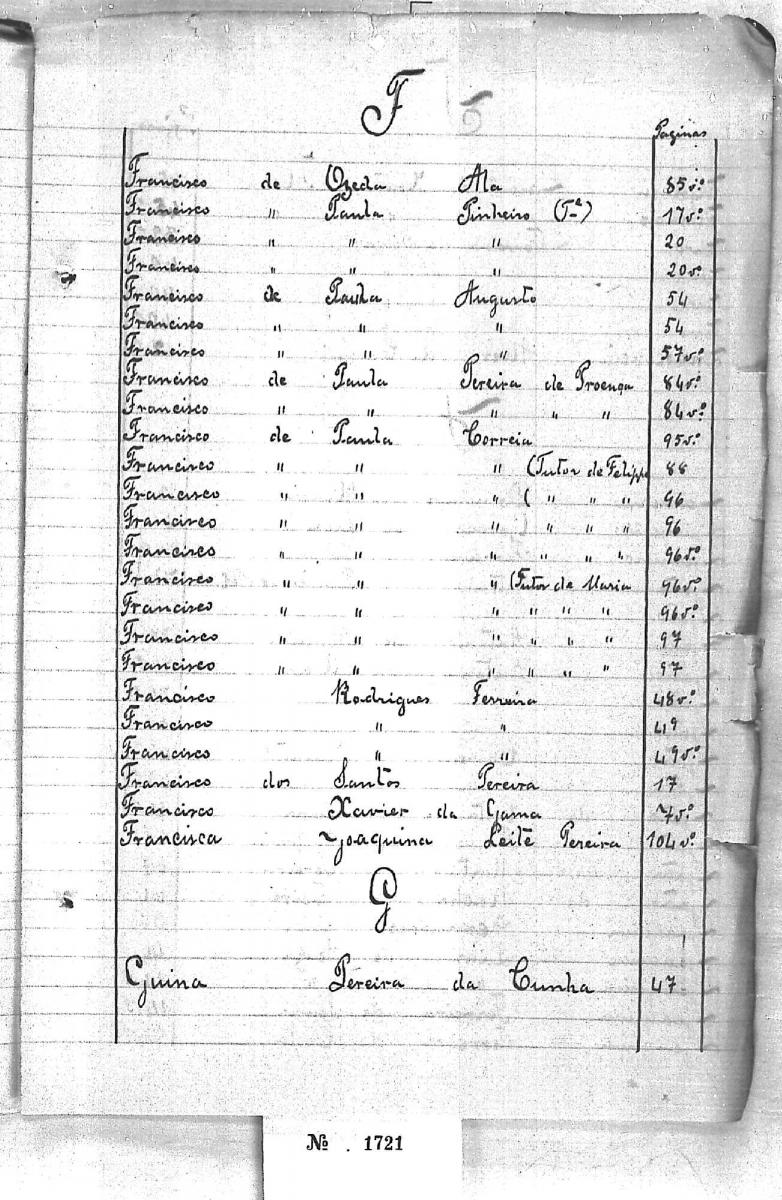 F
Paginas
Francisco de Ozeda Ala 85vº
Francisco " Paula Pinheiro (Tª) 17vº
Francisco " " " 20
Francisco " " " 20vº
Francisco de Paula Augusto 54
Francisco " " " 54
Francisco " " " 57vº
Francisco de Paula Pereira de Proença 84vº
Francisco " " " " " 84vº
Francisco de Paula Correia 95vº
Francisco " " " (Tutor de Felippe 88
Francisco " " " ( " " " 96
Francisco " " " ( " " " 96
Francisco " " " " " " 96vº
Francisco " " " (Tutor de Maria 96vº
Francisco " " " " " " 96vº
Francisco " " " " " " 97
Francisco " " " " " " 97
Francisco Rodrigues Ferreira 48vº
Francisco " " 49
Francisco " " 49vº
Francisco dos Santos Pereira 17
Francisco Xavier da Gama 7vº
Francisca Joaquina Leite Pereira 104vº
G
Guina Pereira da Cunha 47
Nº . 1721